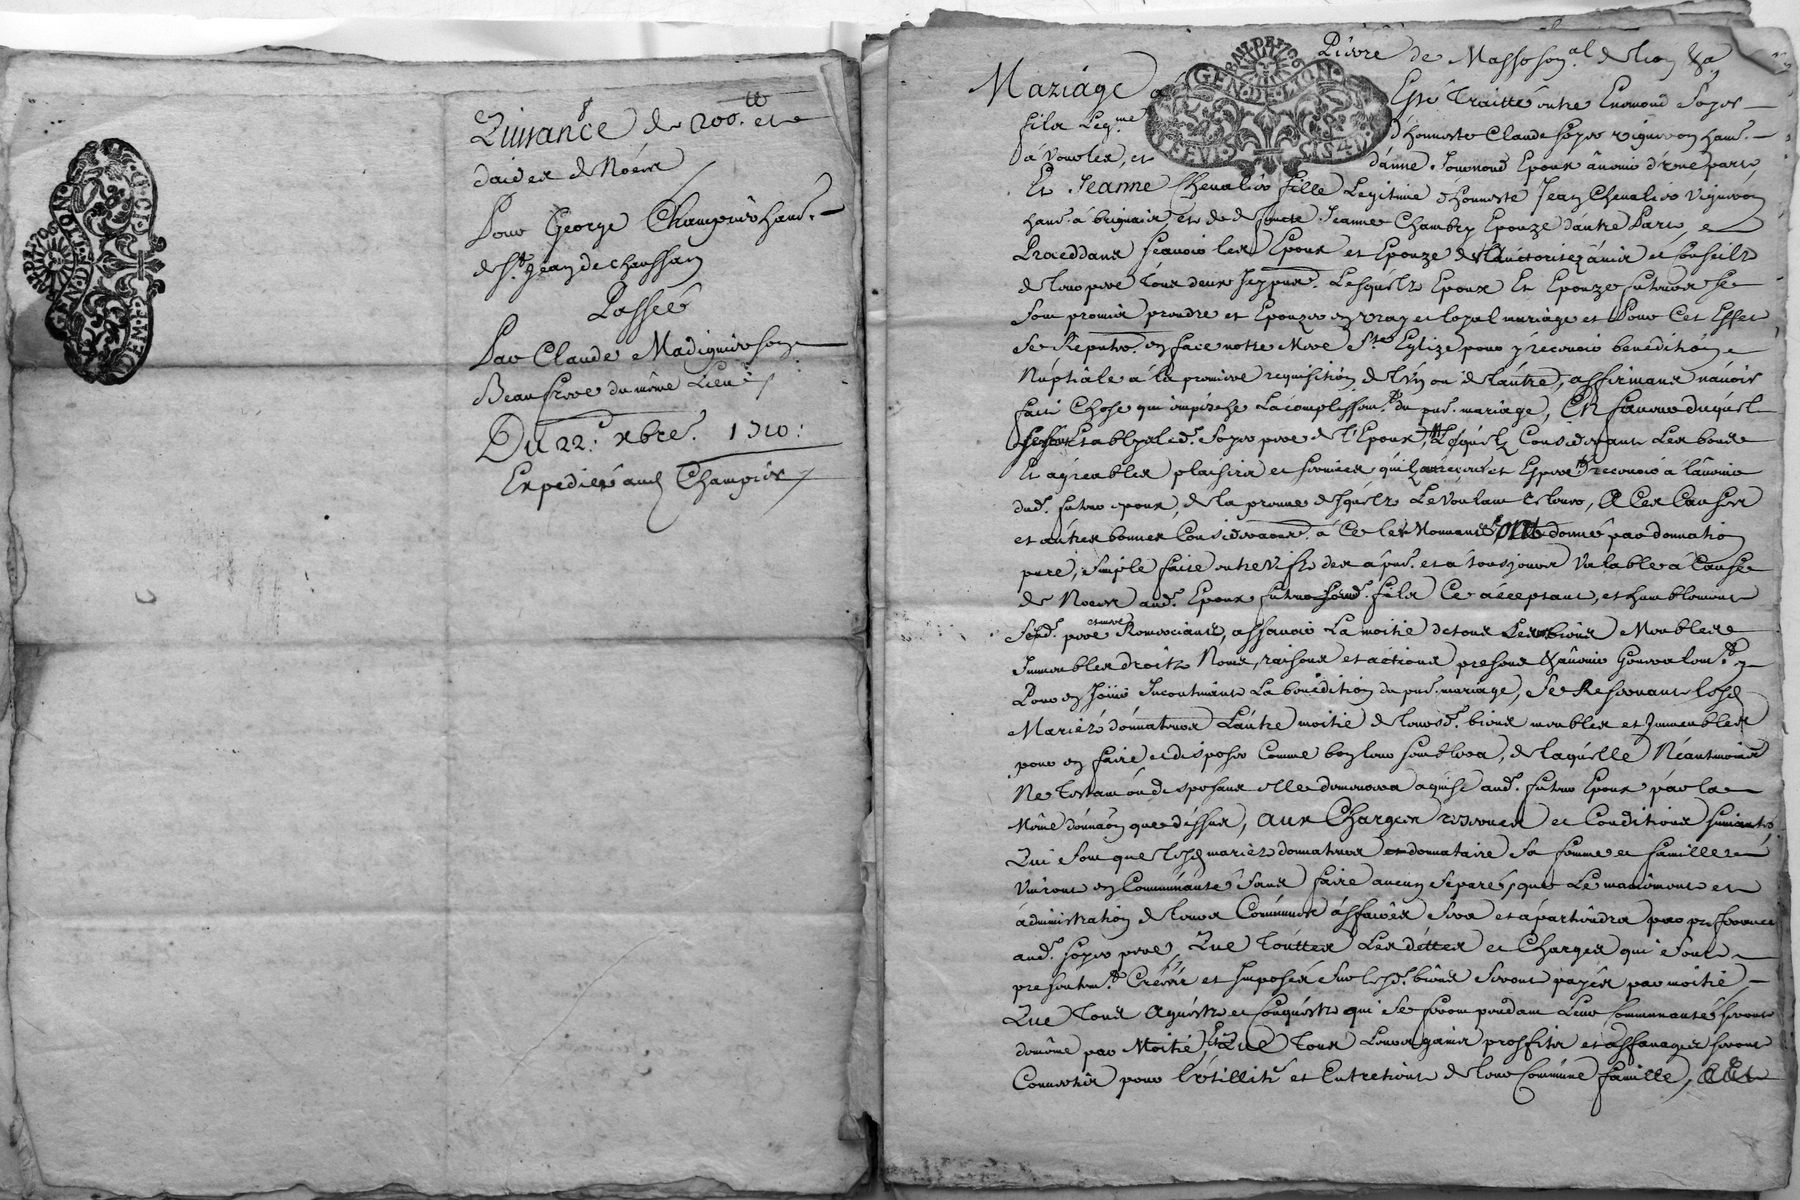 Quittance de 200.# et
de Noces
Pour George Champier hant.
de St. Jean de Chaussan
Passée
Par Claude Madignier son
Beaufrere du même Lieu
Du 22.e xbre. 1710:
Expediée aud Champier
GEN. DE LION
MARIAGE
Esté Traitté entre Enemond Soyer
fils Leg.me d'honneste Claude Soyer vigneron hant.
à Vourles, et d'anne Epoux àvenir d'une part
Et Jeanne Chevalier fille Legitime d'honneste Jean Chevalier Vigneron
hant. à brignais et de deffuncte Jeanne Chambry Epouze d'autre Part, et
Procedans sçavoir les Epoux et Epouze de L'auctorité avis et Conseilz
de leur pere tous deux Icy pnt. Lesquelz Epoux Et Epouze futurs se
sont promis prendre et Epouzer en vray et loyal mariage et Pour Cet Effet
se Repnter. en face notre Mere Ste. Eglize pour y recevoir benediction
Nuptiale à la premiere requisition de L'un ou de L'autre, affirmans n'avoir
fait Chose qui empesche L'accomplissem.t du pnt. mariage, En faveur duquel
Establys Led. Soyer pere de l'Epoux, Lesquelz Considerants Les bons
Et agreables plaisirs et services qu'ilz et Espere recevoir à l'avenir
dud. futur epoux, de la preuve desquelz Le Voulant relever, A Ces Causes
et autres bonnes Considerations à Ce les Mouvants Ont donné par donnation
pure, simple faite entre vifs des à pnt. et à tousjours Valable à Cause
de Noces aud. Epoux futur fils Ce acceptant, et humblement
sesd. pere et mere Remerciants, assavoir La moitié de tous Les biens Meubles
Immeubles droits Noms, raisons et actions presens & avenir Generalem.t
Pour en Jouir Incontinant La benediction du pnt. mariage, Se Reservants lesd
Mariez donnateurs L'autre moitié de leursd. biens meubles et Immeubles
pour en faire et disposer Comme bon leur semblera, de laquelle Neantmoins
Ne Testant ou disposans elle demeurera aquise aud. futur Epoux par la
Même donnaon que dessus, aux Charges reserves et Conditions suivantes
Qui sont que lesd mariez donnateurs et donnataire sa femme et famille
Vivront en Communauté sans faire aucun Separé, que Le maniement et
administration de leurs Communes affaires sera et apartiendra par preferance
aud. Soyer pere, Que Toutes Les dettes et Charges qui sont
presentem.t Créées et Imposées sur lesd. biens seront payées par moitié
Que Tous Aquests et Conquests qui se feront pendant Leur Communauté seront
de même par Moitié, Et Que Tous Leurs gains proffits et affanages seront
Convertis pour l'utillité et Entretient de leur Commune famille,